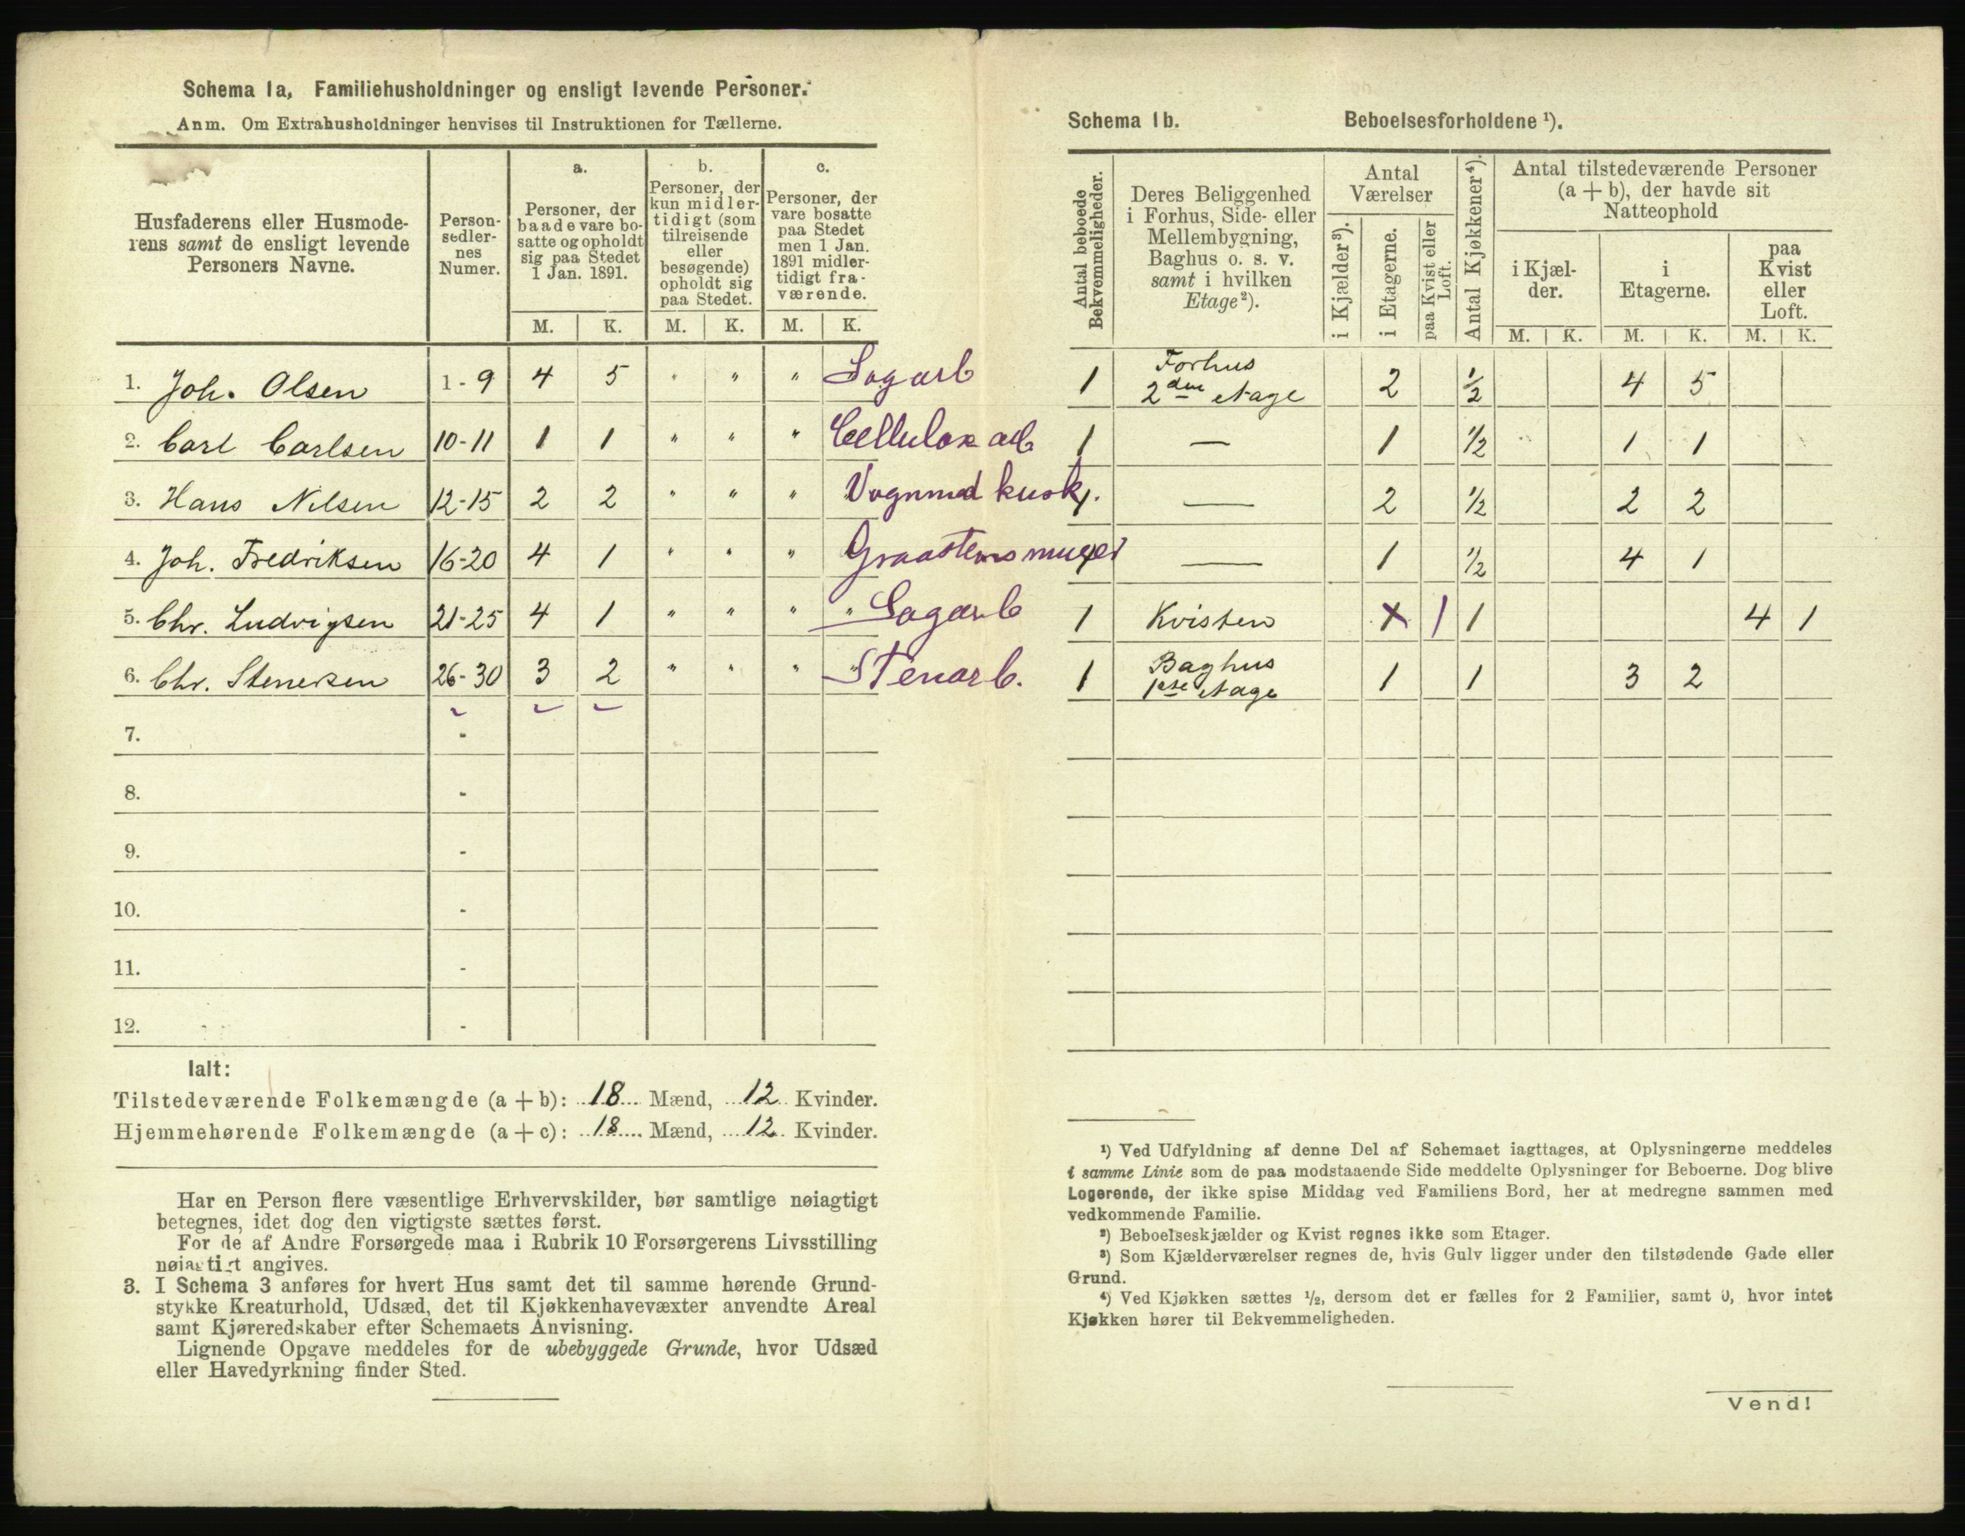 Schema 1a, Familiehusholdninger og ensligt levende Personer.
Anm. Om Extrahusholdninger henvises til Instruktionen for Tællerne.
Husfaderens eller Husmoderens samt de ensligt levende Personers Navne.
Personsedlernes Numer.
a. Personer, der baade vare bosatte og opholdt sig paa Stedet 1 Jan. 1891.
b. Personer, der kun midlertidigt (som tilreisende eller besøgende) opholdt sig paa Stedet.
c. Personer, der vare bosatte paa Stedet men 1 Jan. 1891 midlertidigt fraværende.
M. K. M. K. M. K.
1. Joh. Olsen 1-9 4 5 " " " Sagarb
2. Carl Carlsen 10-11 1 1 " " " Cellulose arb
3. Hans Nilsen 12-15 2 2 " " " Vognmd kusk.
4. Joh. Fredriksen 16-20 4 1 " " " Graastensmurer
5. Chr. Ludvigsen 21-25 4 1 " " " " Sagarb
6. Chr. Stenersen 26-30 3 2 " " " " Stenarb.
7. -
8. -
9. -
10. -
11. -
12. -
Ialt:
Tilstedeværende Folkemængde (a + b): 18 Mænd, 12 Kvinder.
Hjemmehørende Folkemængde (a + c): 18 Mænd, 12 Kvinder.
Har en Person flere væsentlige Erhvervskilder, bør samtlige nøiagtigt
betegnes, idet dog den vigtigste sættes først.
For de af Andre Forsørgede maa i Rubrik 10 Forsørgerens Livsstilling
nøiagtigt angives.
3. I Schema 3 anføres for hvert Hus samt det til samme hørende Grund-
stykke Kreaturhold, Udsæd, det til Kjøkkenhavevæxter anvendte Areal
samt Kjøreredskaber efter Schemaets Anvisning.
Lignende Opgave meddeles for de ubebyggede Grunde, hvor Udsæd
eller Havedyrkning finder Sted.
Schema 1b. Beboelsesforholdene ¹).
Antal beboede Bekvemmeligheder.
Deres Beliggenhed i Forhus, Side- eller Mellembygning, Baghus o. s. v. samt i hvilken Etage ²).
Antal Værelser
i Kjælder ³).
i Etagerne.
paa Kvist eller Loft.
Antal Kjøkkener ⁴).
Antal tilstedeværende Personer (a + b), der havde sit Natteophold
i Kjælder.
i Etagerne.
paa Kvist eller Loft.
M. K. M. K. M. K.
1 Forhus 2den etage 2 1/2 4 5
1 — 1 1/2 1 1
1 — 2 1/2 2 2
1 — 1 1/2 4 1
1 Kvisten 1 1 1 4 1
1 Baghus 1ste etage 1 1 3 2
¹) Ved Udfyldning af denne Del af Schemaet iagttages, at Oplysningerne meddeles
i samme Linie som de paa modstaaende Side meddelte Oplysninger for Beboerne. Dog blive
Logerende, der ikke spise Middag ved Familiens Bord, her at medregne sammen med
vedkommende Familie.
²) Beboelseskjælder og Kvist regnes ikke som Etager.
³) Som Kjælderværelser regnes de, hvis Gulv ligger under den tilstødende Gade eller
Grund.
⁴) Ved Kjøkken sættes ½, dersom det er fælles for 2 Familier, samt 0, hvor intet
Kjøkken hører til Bekvemmeligheden.
Vend!